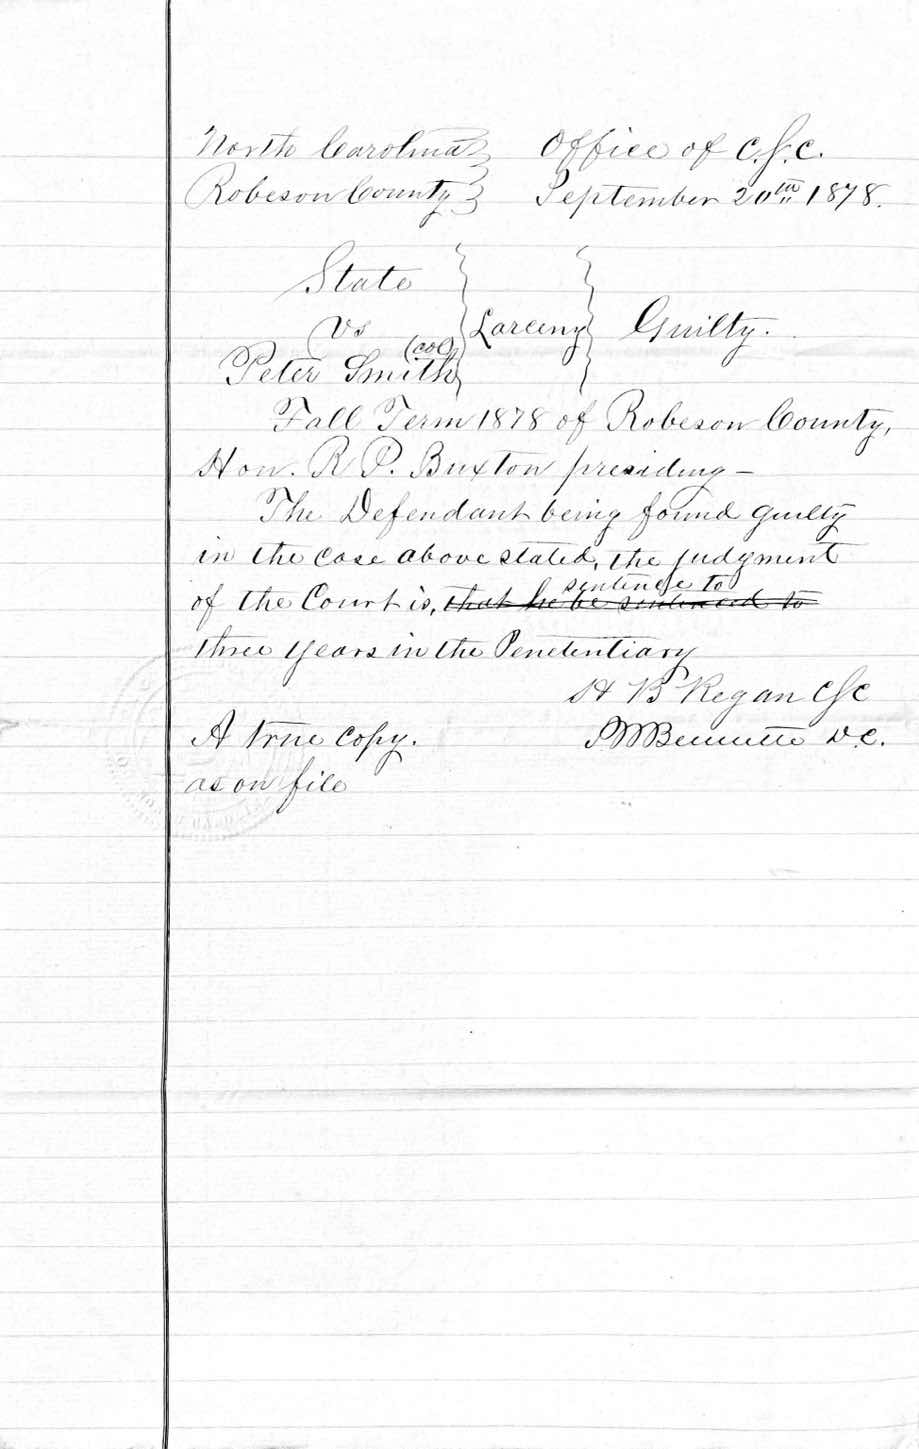 North Carolina } Office of C.S.C.
Robeson County } September 20th 1878.
State
vs } Larceny } Guilty.
(col)
Peter Smith
Fall Term 1878 of Robeson County,
Hon. R P. Buxton presiding –
The Defendant being found guilty
in the case above stated, the judgment
sentence to
of the Court is, that he be sentenced to
three years in the Penetentiary
H B Regan CSC
A true copy. Bennette D.C.
as on file